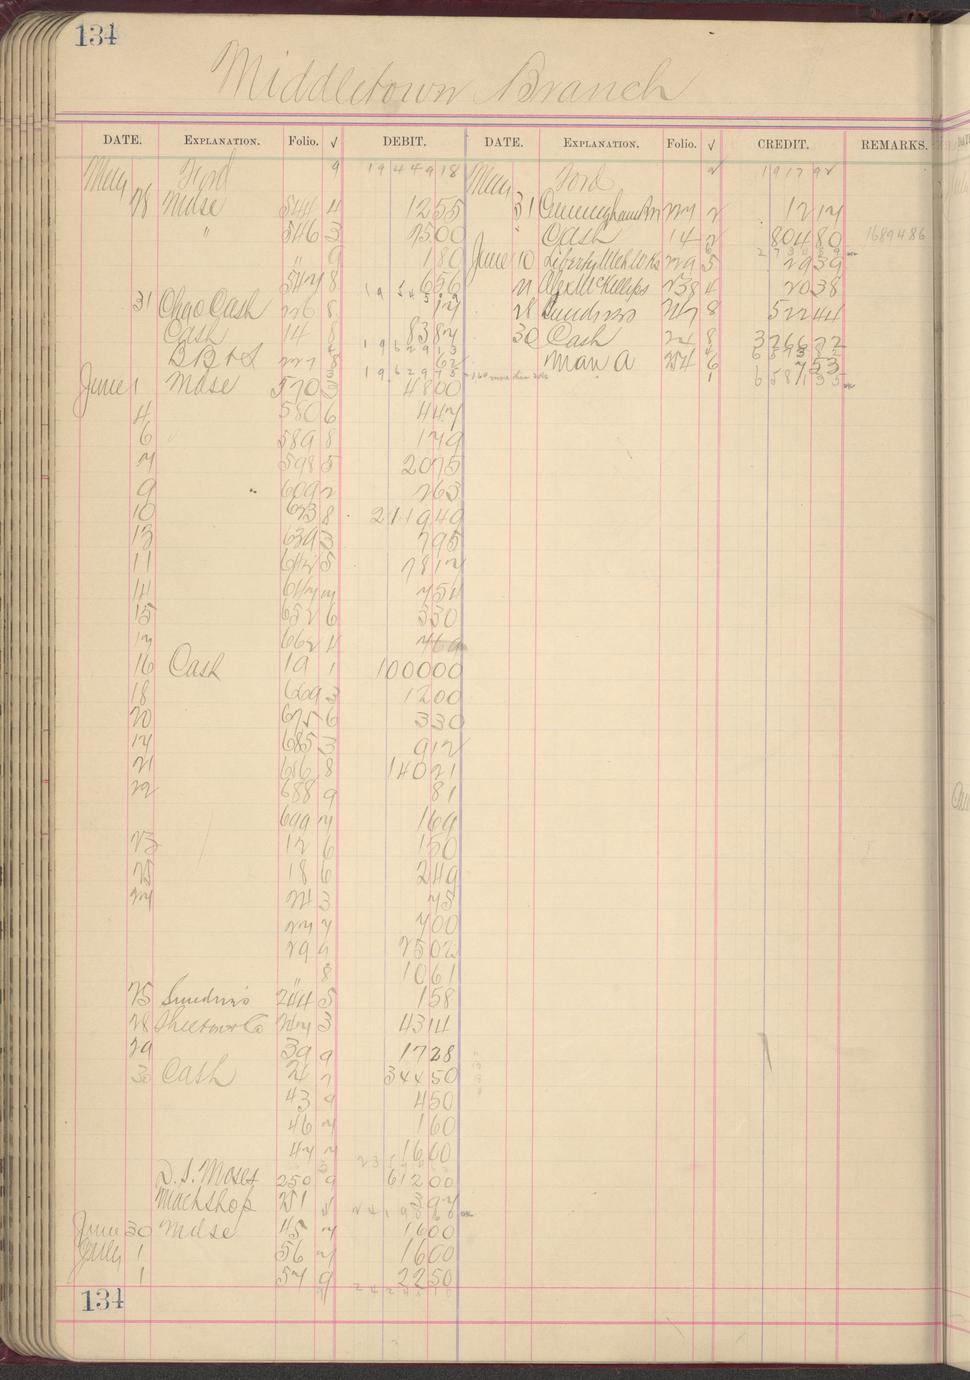 134
Middletown Branch
DATE. EXPLANATION. Folio. √ DEBIT. DATE. EXPLANATION. Folio. √ CREDIT. REMARKS.
May Ford 9 1944918 May Ford 2 191792
28 Mdse 544 4 1255 31 Cunningham 27 2 1217
" 546 3 2500 " Cash 14 2 80480 1689486
" 9 180 June 10 229 5 2939
547 8 656 21 Alex McKillips 238 4 2038
31 Chgo Cash 226 8 28 Sundries 247 8 52244
Cash 14 8 8387 30 Cash 24 8 326622
B B & S 227 8 62 Man A 254 6 753
June 1 Mdse 570 3 4800
4 580 6 447
6 589 8 179
7 598 5 2075
9 609 2 263
10 623 8 211940
13 639 3 295
11 642 5 7817
14 647 7 754
15 652 6 330
17 662 4 769
16 Cash 19 1 100000
18 669 3 1200
20 675 6 330
14 685 3 912
21 686 8 14021
22 688 9 81
699 7 169
23 12 6 150
25 18 6 249
27 24 3 75
27 7 700
29 2502
" 8 1061
25 Sundries 244 5 158
28 247 3 4314
29 39 9 1728
30 Cash 24 7 34450
43 9 450
46 7 160
47 7 1600
D. S. Moses 250 9 61200
Mach Shop 251 397
June 30 Mdse 45 7 1600
July 1 56 7 1600
1 57 9 2250
134